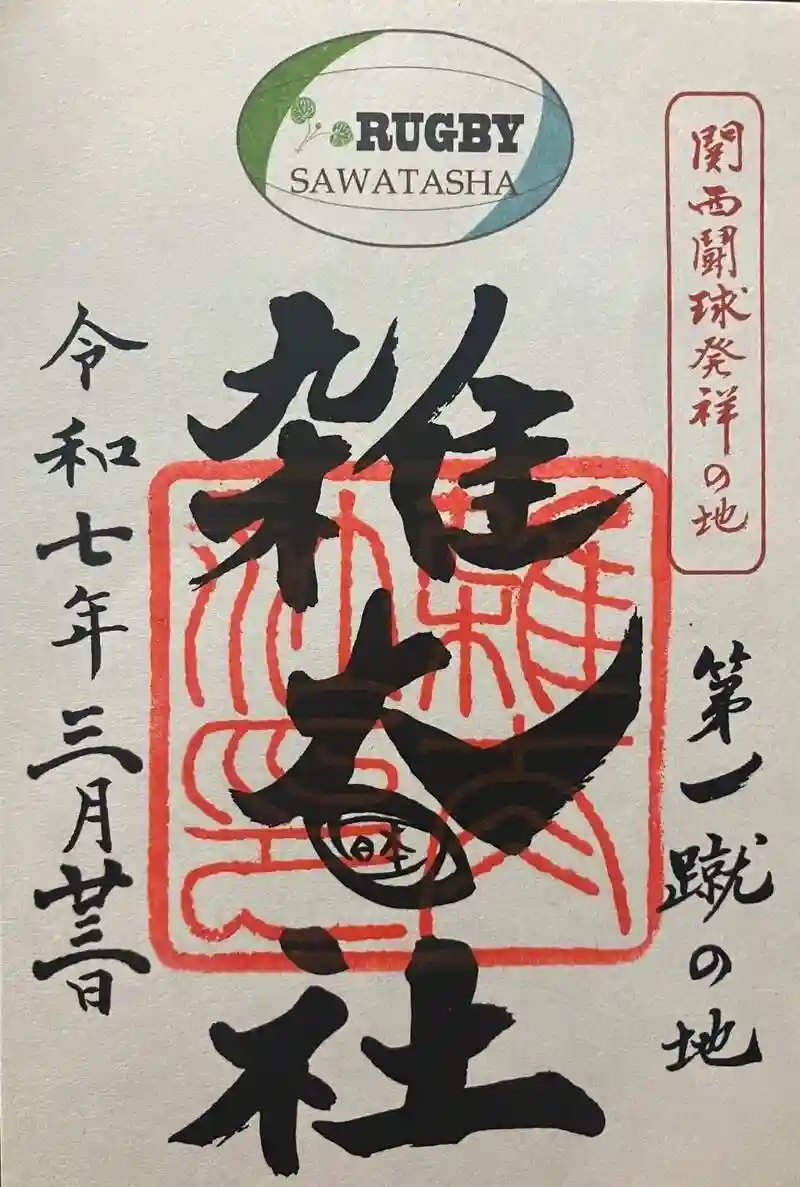 RUGBY
SAWATASHA
関西闘球発祥の地
第一蹴の地
雑太社
日本
令和七年三月廿三日